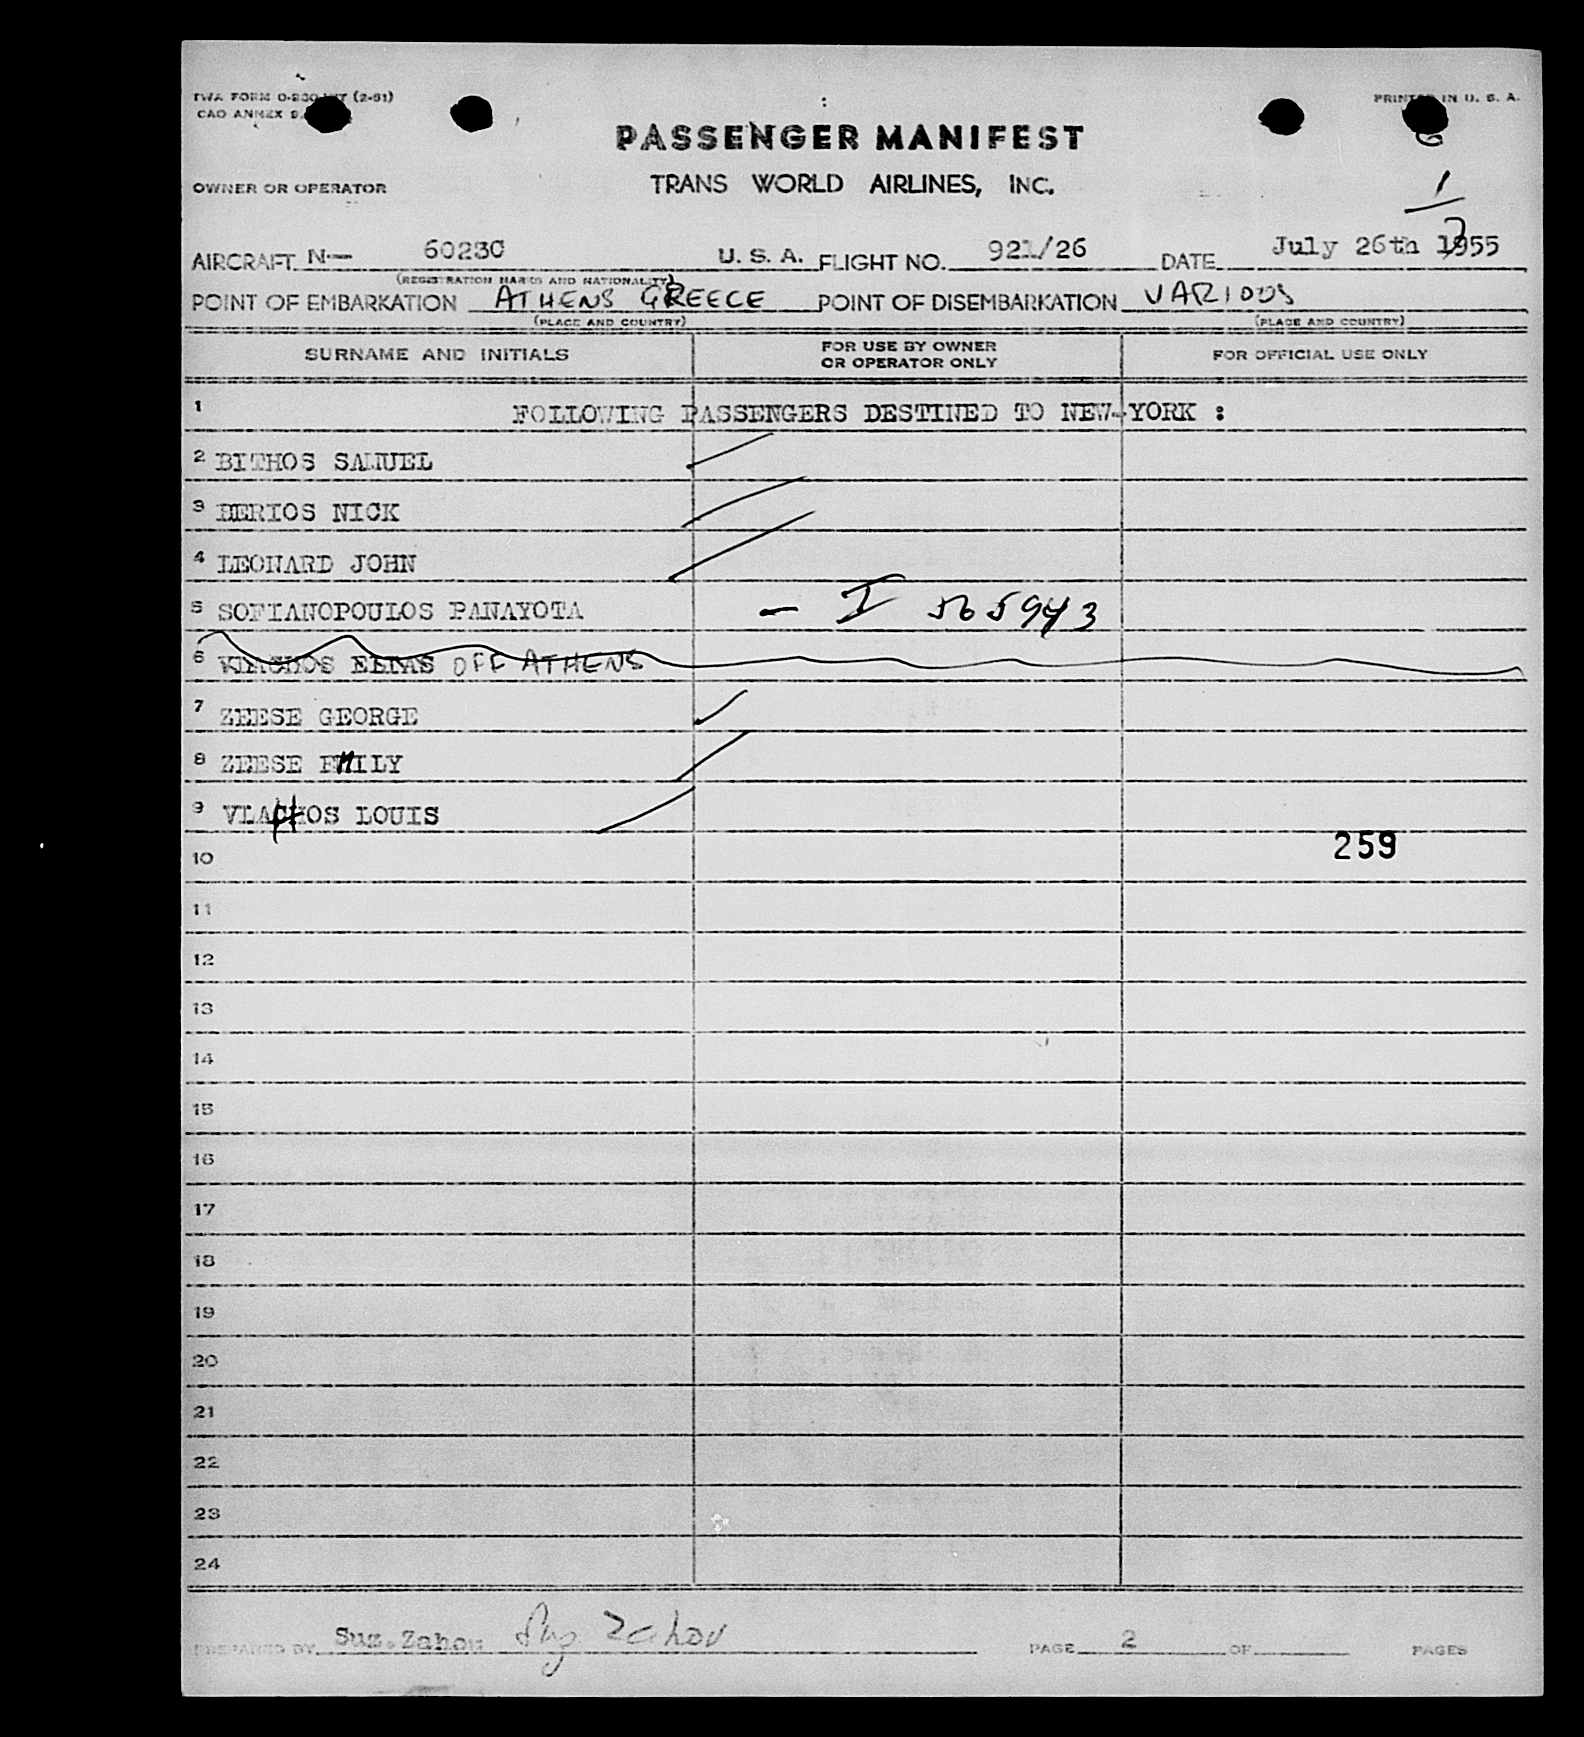 TWA FORM (2-51) PRINTED IN U. S. A.
CAO ANNEX 9
PASSENGER MANIFEST
OWNER OR OPERATOR TRANS WORLD AIRLINES, INC.
1
3
AIRCRAFT N— 6023C U. S. A. FLIGHT NO. 921/26 DATE July 26th 1955
(REGISTRATION MARKS AND NATIONALITY)
POINT OF EMBARKATION ATHENS GREECE POINT OF DISEMBARKATION VARIOUS
(PLACE AND COUNTRY) (PLACE AND COUNTRY)
SURNAME AND INITIALS FOR USE BY OWNER OR OPERATOR ONLY FOR OFFICIAL USE ONLY
1 FOLLOWING PASSENGERS DESTINED TO NEW-YORK :
2 BITHOS SAMUEL
3 NICK
4 LEONARD JOHN
5 SOFIANOPOULOS PANAYOTA — I 565943
6 ELIAS OFF ATHENS
7 ZEESE GEORGE
8 ZEESE EMILY
9 VLACHOS LOUIS
259
10
11
12
13
14
15
16
17
18
19
20
21
22
23
24
PREPARED BY Suz. Zahou Suz Zahou PAGE 2 OF PAGES